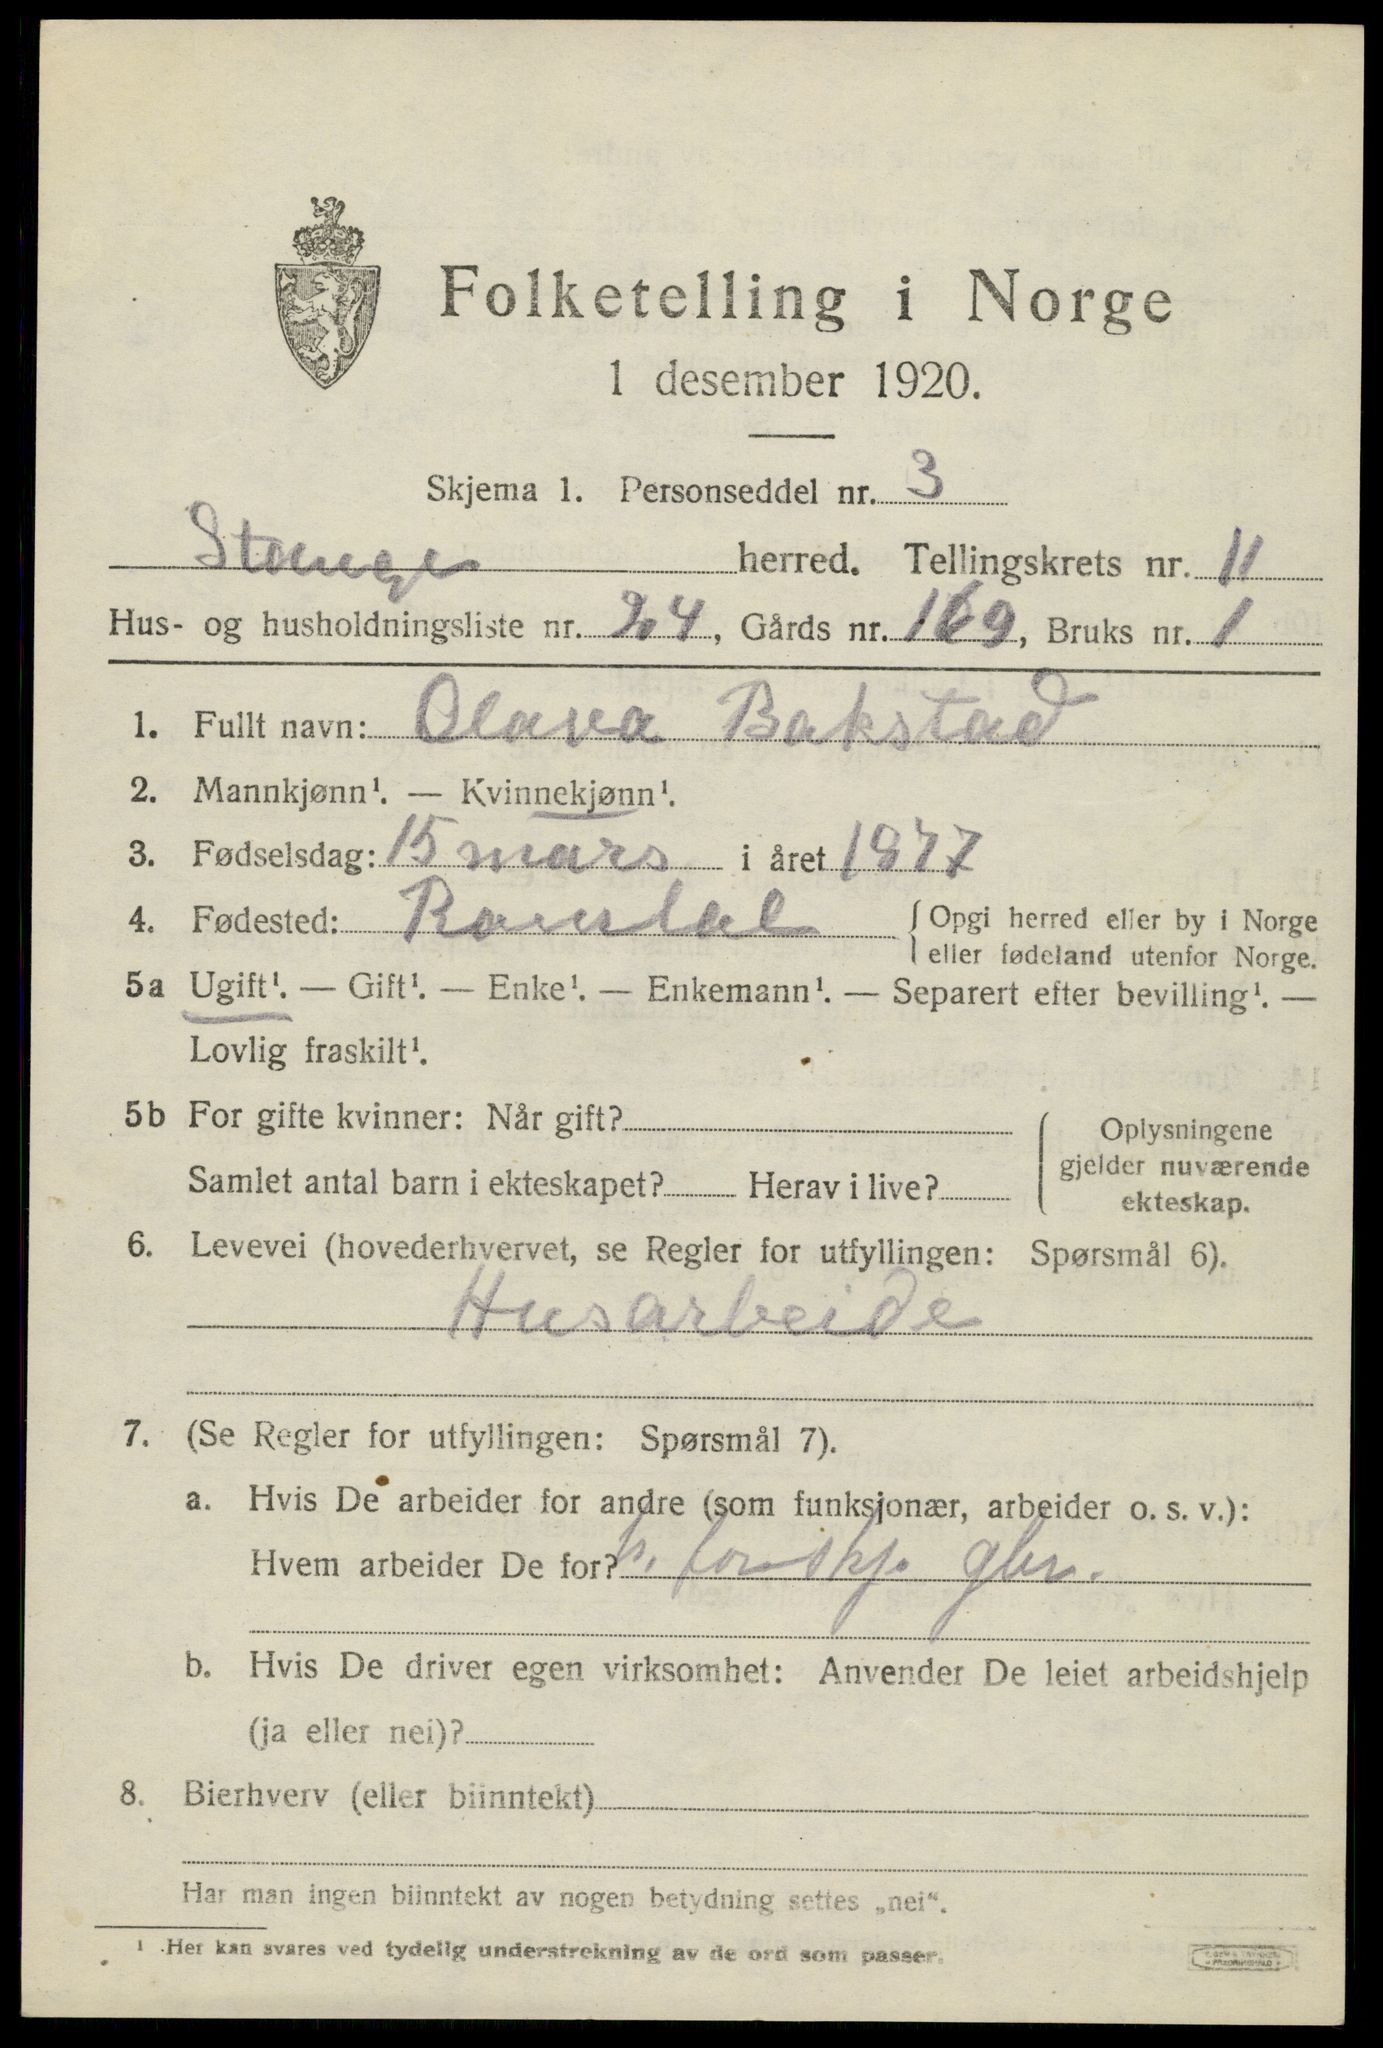 Folketelling i Norge
1 desember 1920.
Skjema 1. Personseddel nr. 3
Stange herred. Tellingskrets nr. 11
Hus- og husholdningsliste nr. 24, Gårds nr. 169, Bruks nr. 1
1. Fullt navn: Olava Bakstad
2. Mannkjønn¹. — Kvinnekjønn¹.
3. Fødselsdag: 15 mars i året 1877
4. Fødested: Romedal { Opgi herred eller by i Norge
eller fødeland utenfor Norge.
5a Ugift¹. — Gift¹. — Enke¹. — Enkemann¹. — Separert efter bevilling¹. —
Lovlig fraskilt¹.
5b For gifte kvinner: Når gift?
Samlet antal barn i ekteskapet? Herav i live?
Oplysningene
gjelder nuværende
ekteskap.
6. Levevei (hovederhvervet, se Regler for utfyllingen: Spørsmål 6).
Husarbeide
7. (Se Regler for utfyllingen: Spørsmål 7).
a. Hvis De arbeider for andre (som funksjonær, arbeider o. s. v.):
Hvem arbeider De for? gbr.
b. Hvis De driver egen virksomhet: Anvender De leiet arbeidshjelp
(ja eller nei)?
8. Bierhverv (eller biinntekt)
Har man ingen biinntekt av nogen betydning settes „nei“.
¹ Her kan svares ved tydelig understrekning av de ord som passer.